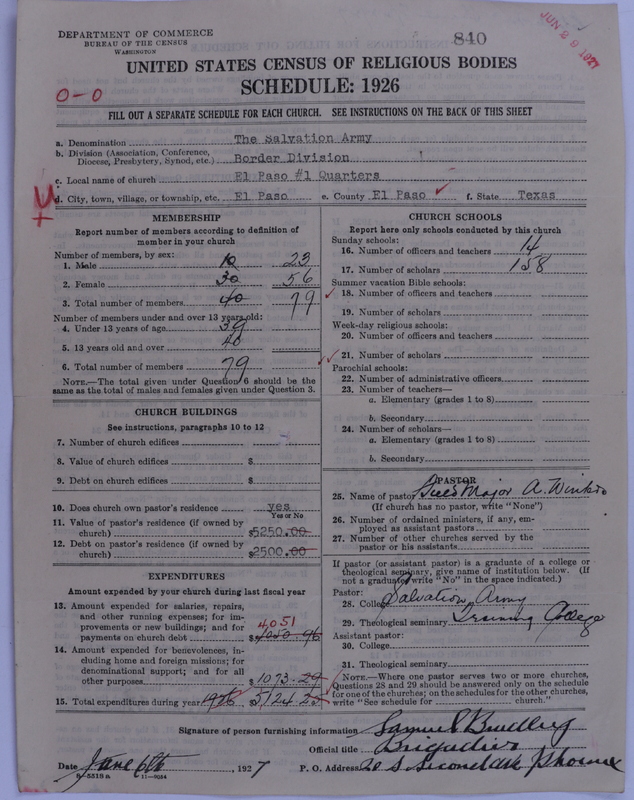 DEPARTMENT OF COMMERCE
BUREAU OF THE CENSUS
WASHINGTON
840
JUN 29 1927
UNITED STATES CENSUS OF RELIGIOUS BODIES
SCHEDULE: 1926
0-0
FILL OUT A SEPARATE SCHEDULE FOR EACH CHURCH. SEE INSTRUCTIONS ON THE BACK OF THIS SHEET
a. Denomination The Salvation Army
b. Division (Association, Conference, Diocese, Presbytery, Synod, etc.) Border Division
c. Local name of church El Paso #1 Quarters
d. City, town, village, or township, etc. El Paso e. County El Paso f. State Texas
MEMBERSHIP
Report number of members according to definition of
member in your church
Number of members, by sex:
1. Male 10 23
2. Female 30 56
3. Total number of members 40 79
Number of members under and over 13 years old:
4. Under 13 years of age 39
5. 13 years old and over 40
6. Total number of members 79
NOTE.—The total given under Question 6 should be
same as the total of males and females given under Question 3.
CHURCH BUILDINGS
See instructions, paragraphs 10 to 12
7. Number of church edifices
8. Value of church edifices $
9. Debt on church edifices $
10. Does church own pastor's residence? yes
Yes or No
11. Value of pastor's residence (if owned by
church) $5250.00
12. Debt on pastor's residence (if owned by
church) $2500.00
EXPENDITURES
Amount expended by your church during last fiscal year
13. Amount expended for salaries, repairs,
and other running expenses; for im-
provements or new buildings; and for
payments on church debt 4051 $4050.96
14. Amount expended for benevolences, in-
cluding home and foreign missions; for
denominational support; and for all
other purposes $1073.29
15. Total expenditures during year 1926 $5124.25
CHURCH SCHOOLS
Report here only schools conducted by this church
Sunday schools:
16. Number of officers and teachers 14
17. Number of scholars 158
Summer vacation Bible schools:
18. Number of officers and teachers
19. Number of scholars
Week-day religious schools:
20. Number of officers and teachers
21. Number of scholars
Parochial schools:
22. Number of administrative officers
23. Number of teachers—
a. Elementary (grades 1 to 8)
b. Secondary
24. Number of scholars—
a. Elementary (grades 1 to 8)
b. Secondary
PASTOR
25. Name of pastor Major A.
(If church has no pastor, write "None")
26. Number of ordained ministers, if any, em-
ployed as assistant pastors
27. Number of other churches served by the
pastor or his assistants
If pastor (or assistant pastor) is a graduate of a college or
theological seminary, give name of institution below. (If
not a graduate, write "No" in the space indicated.)
Pastor:
28. College Salvation Army
29. Theological seminary Training College
Assistant pastor:
30. College
31. Theological seminary
NOTE.—Where one pastor serves two or more churches,
Questions 28 and 29 should be answered only on the schedule
for one of the churches; on the schedules for the other churches,
write "See schedule for church."
Signature of person furnishing information Samuel Bradley
Official title Brigadier
Date June 6th, 1927 P. O. Address 20 S Second Ave Phoenix
8-5518 a 11-9024